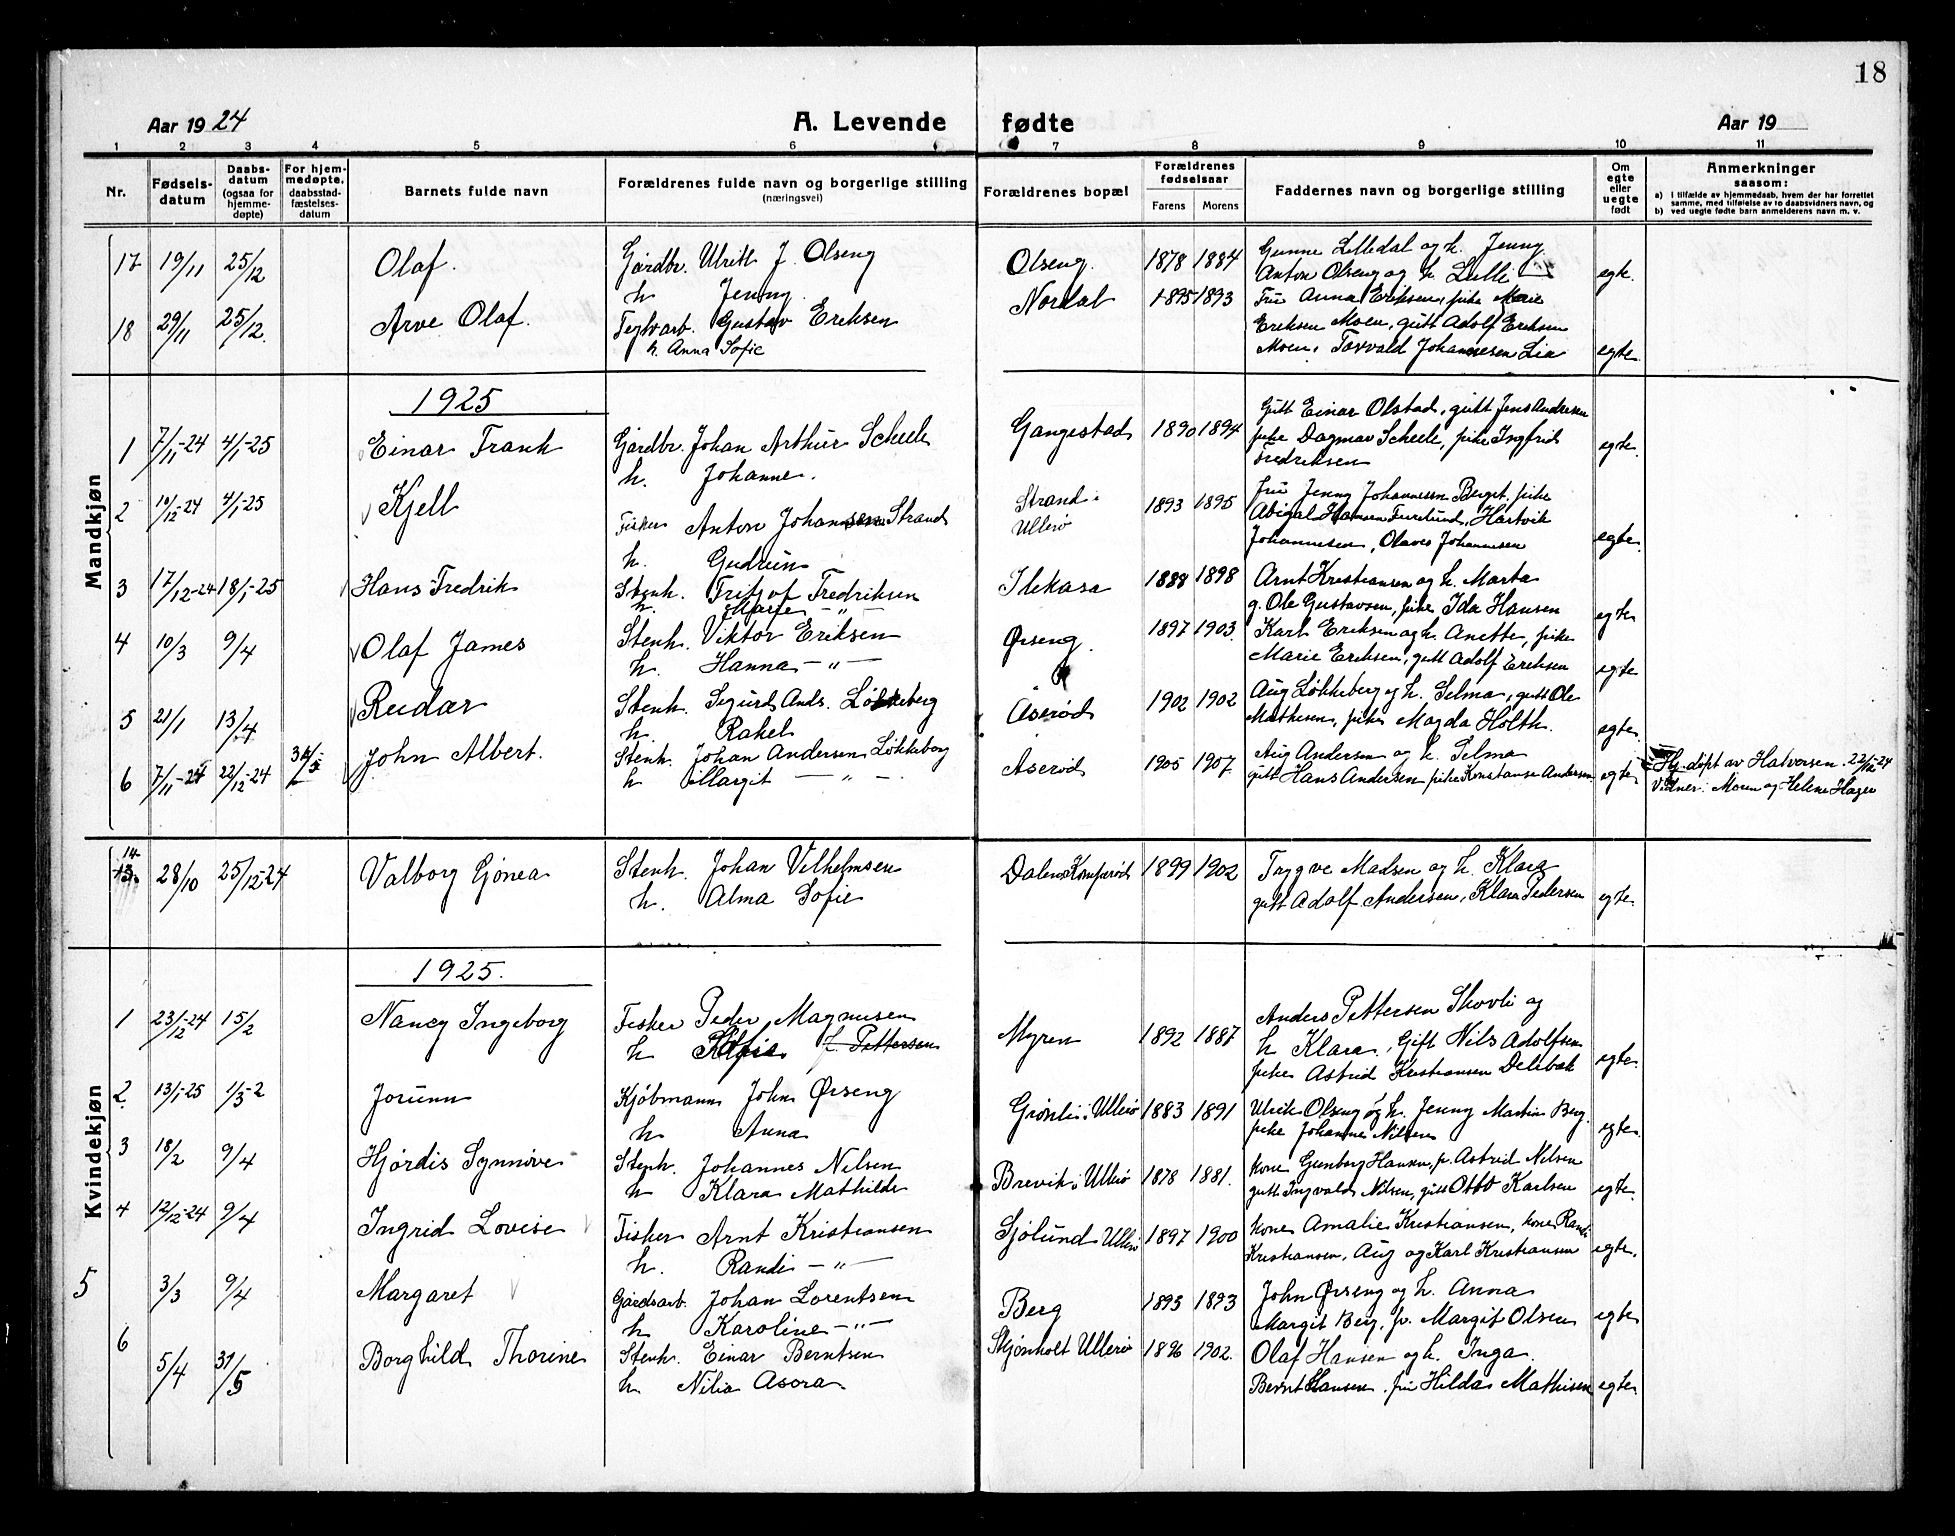 18
Aar 1924 A. Levende fødte Aar 19
1 2 3 4 5 6 7 8 9 10 11
Nr. Fødselsdatum Daabsdatum (ogsaa for hjemmedøpte) For hjemmedøpte, daabsstadfæstelsesdatum Barnets fulde navn Forældrenes fulde navn og borgerlige stilling (næringsvei) Forældrenes bopæl Forældrenes fødselsaar Farens Morens Faddernes navn og borgerlige stilling Om egte eller uegte født Anmerkninger saasom: a) i tilfælde av hjemmedaab, hvem der har forrettet samme, med tilføielse av to daabsvidners navn, og b) ved uegte fødte barn anmelderens navn m. v.
Mandkjøn
17 19/11 25/12 Olaf. Gårdbr. Ulrik J. Olseng Olseng. 1878 1884 Gunne Lilledal og h. Jenny
h Jenny. Anton Olseng og h Lilli egte.
18 29/11 25/12. Arve Olaf. Teglvarb. Gustav Eriksen Nordal 1895 1893 Fru Anna Eriksen, pike Marie
h. Anna Sofie Eriksen Moen, gutt Adolf Eriksen
Moen, Torvald Johannesen Lia egte.
1925
1 7/11-24 4/1-25 Einar Frank Gårdbr. Johan Arthur Scheele Gangestad 1890 1894 Gutt Einar Olstad, gutt Jens Andersen
h. Johanne. pike Dagmar Scheele, pike Ingfrid
Fredriksen egte.
2 10/12-24 4/1-25 Kjell Fisker Anton Johansen Strand Strand i Ullerø 1893 1895 Fru Jenny Johannesen Berget. pike
h. Gudrun Abigal Hansen Furulund, Hartvik
Johannesen, Olaves Johannesen egte.
3 17/12-24 18/1-25 Hans Fredrik Stenh. Fritjof Fredriksen Ilekasa 1888 1898 Arnt Kristiansen og h. Marta
h. Marie -"- g. Ole Gustavsen, pike Ida Hansen egte
4 10/3 9/4 Olaf James Stenh. Viktor Eriksen Ørseng. 1897 1903. Karl Eriksen og h. Anette, pike
h. Hanna -"- Marie Eriksen, gutt Adolf Eriksen egte
5 21/1 13/4 Reidar Stenh. Sigurd Ands. Løkkeberg Åserød 1902 1902 Aug Løkkeberg og h. Selma, gutt Ole
h. Rakel Mathisen, pike Magda Holth. egte.
6 7/11-24 22/12-24 John Albert. Stenh. Johan Andersen Løkkeberg Åserød 1905 1907. Aug Andersen og h. Selma
h Margit -"- gutt Hans Andersen pike Konstanse Andersen egte Hj. døpt av Halvorsen. 22/12-24
Vidner: Moren og Helene Hagen
Kvindekjøn
14 28/10 25/12-24 Valborg Gjønea Stenh. Johan Vilhelmsen Dalen Komperød 1899 1902 Trygve Madsen og h. Klara
h. Alma Sofie gutt Adolf Andersen, Klara Pedersen egte.
1925.
1 23/12-24 15/2 Nancy Ingeborg Fisker Peder Magnusen Myren 1892 1887 Anders Pettersen Skovli og
h Sofie f. Pettersen h Klara. Gift Nils Adolfsen
pike Astrid Kristiansen Delebak egte.
2. 13/1-25 1/3-2 Jorunn Kjøbmann John Ørseng Grønli i Ullerø 1883 1891 Ulrik Olseng og h. Jenny Martin Berg.
h Anna pike Johanne Nilsen egte.
3 18/2 9/4 Hjørdis Synnøve Stenh. Johannes Nilsen Brevik i Ullerø 1878 1881. kone Gunborg Hansen, p. Astrid Nilsen
h Klara Mathilde gutt Ingvald Nilsen, gutt Otto Karlsen egte.
4 12/12-24 9/4 Ingrid Lovise Fisker Arnt Kristiansen Sjølund Ullerø 1897 1900 kone Amalie Kristiansen, kone Randi
h. Randi -"- Kristiansen, Aug og Karl Kristiansen egte.
5 3/3 9/4 Margaret Gårdsarb. Johan Lorentsen Berg 1895 1893 John Ørseng og h. Anna
h Karoline -"- Margit Berg, p. Margit Olsen egte
6 5/4 31/5 Borghild Thorine Stenh. Einar Berntsen Skjønholt Ullerø 1896 1902. Olaf Hansen og h. Inga.
h Nilia Asora. Bernt Hansen. fru Hilda Mathisen egte.